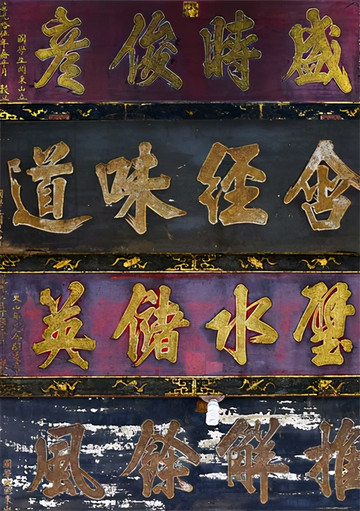 盛時俊彥
含經味道
璧水儲英
推解餘風